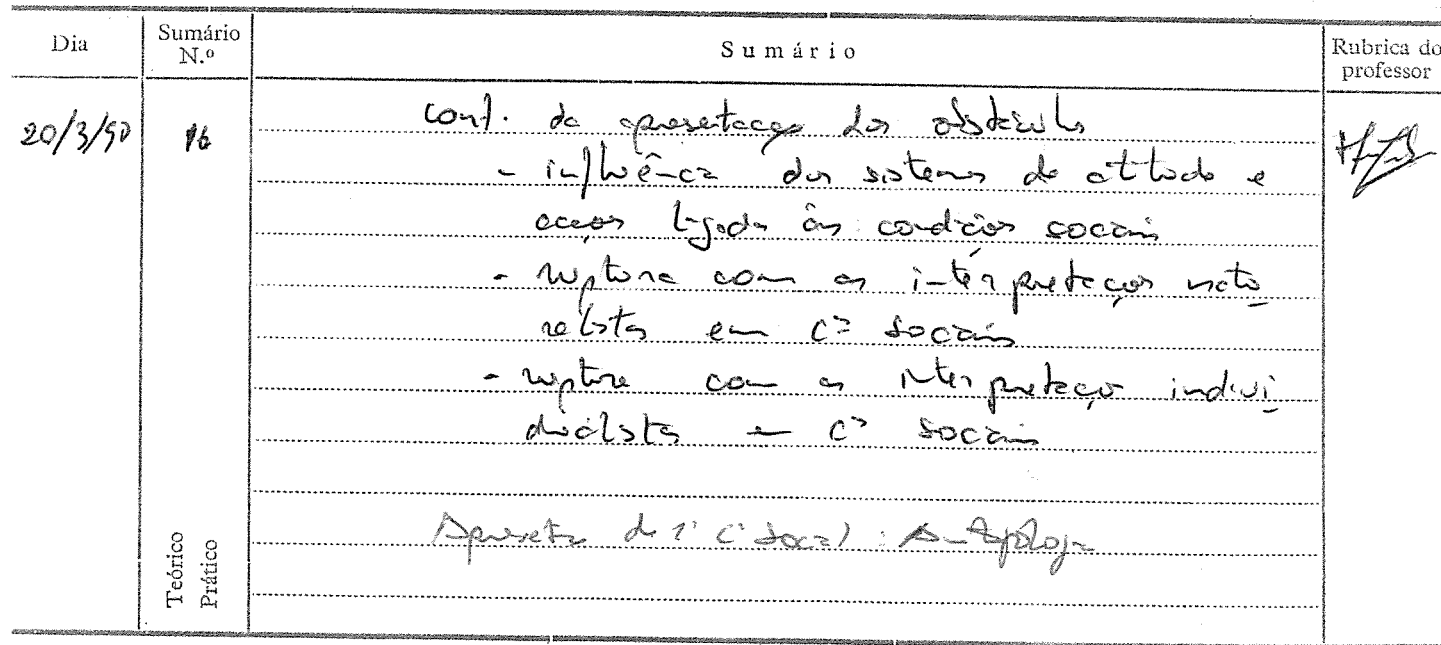 Dia Sumário N.º Sumário Rubrica do professor
20/3/90 16 Cont. da apresentação dos obstáculos
- influência dos sistemas de atitude e
acções ligadas às condições sociais
- ruptura com as interpretações natu
ralistas em Cª Sociais
- ruptura com as interpretações indivi
dualistas em Cª Sociais
Apresentação da 1ª Cª Social: Antropologia
Teórico
Prático